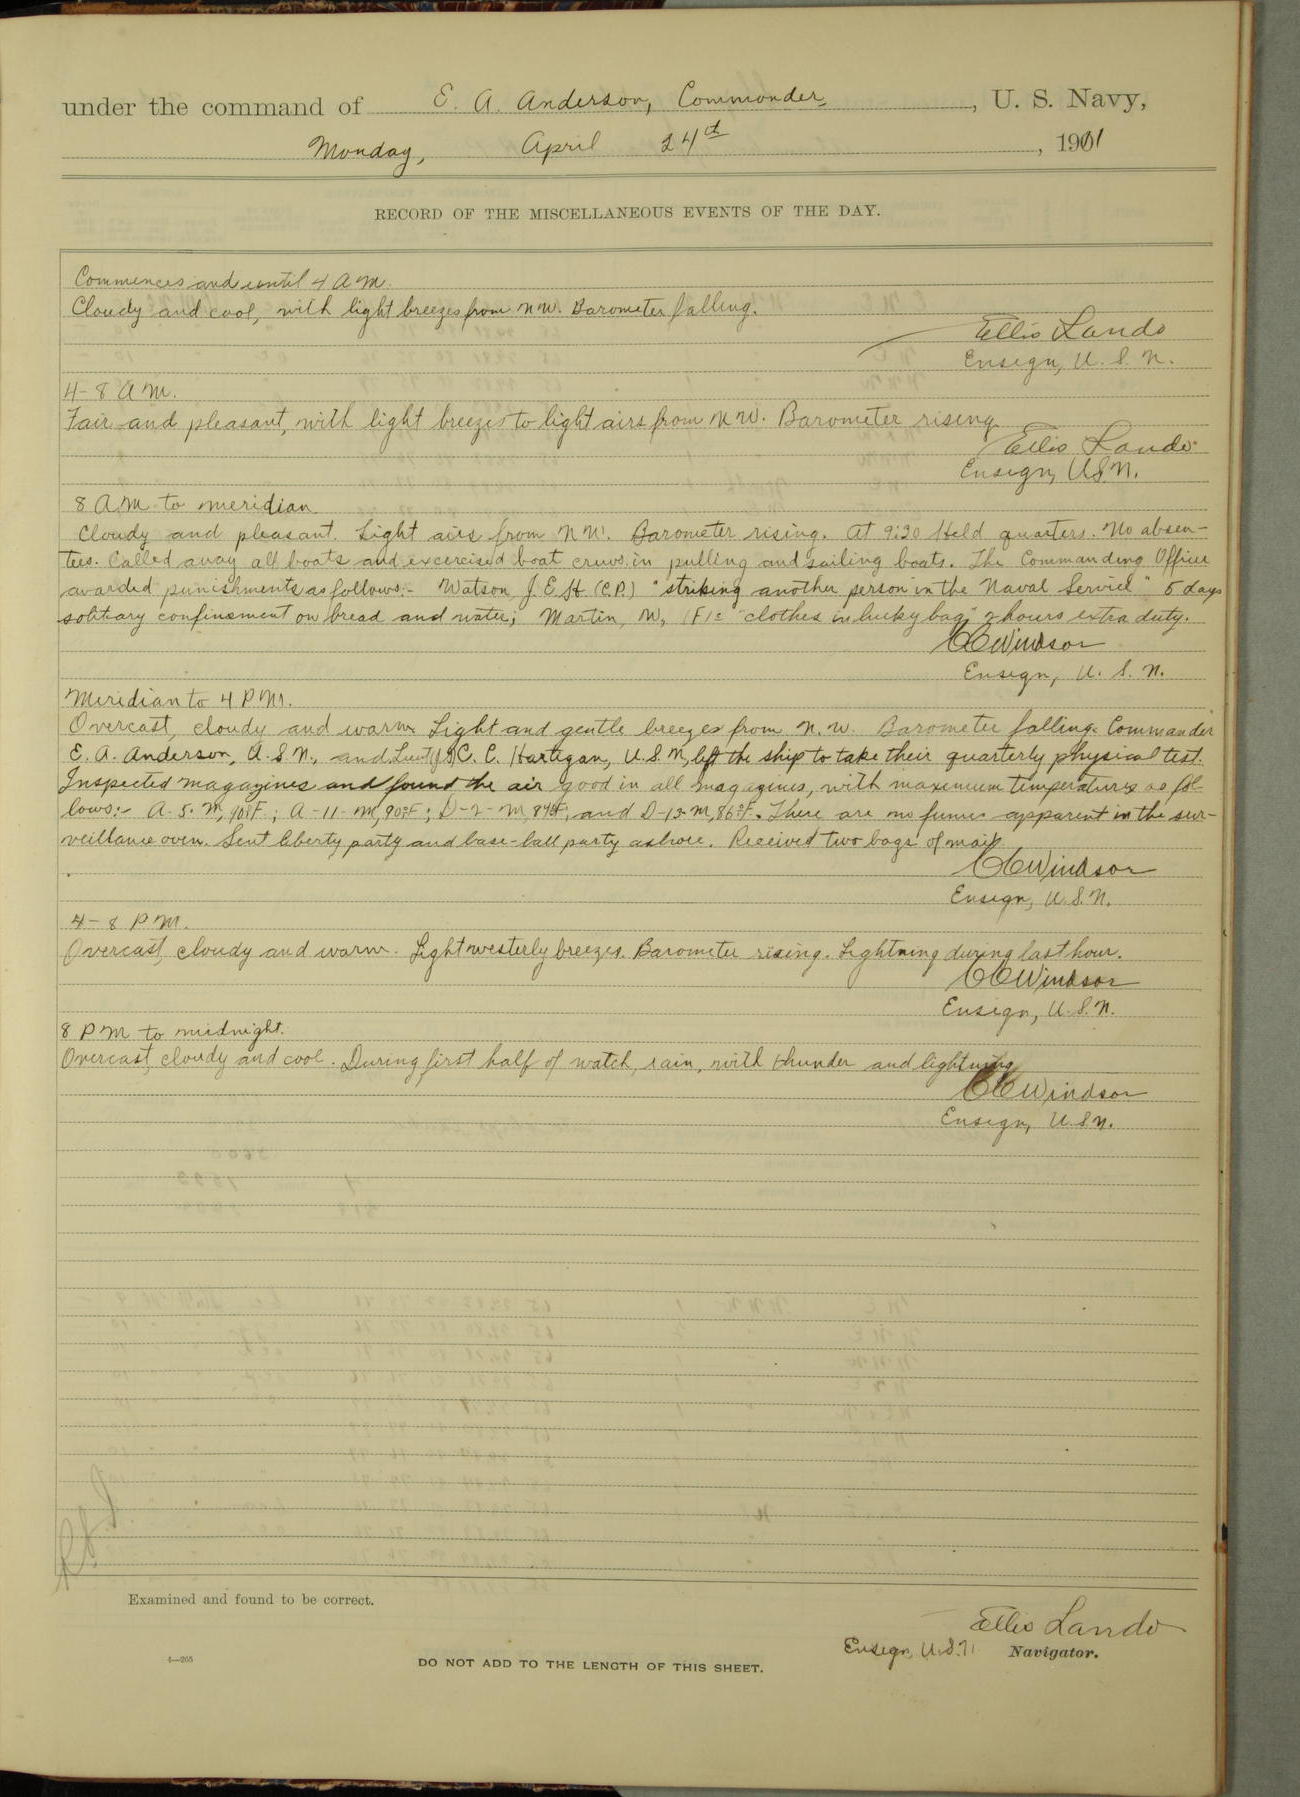 under the command of E. A. Anderson, Commander, U. S. Navy,
Monday, April 24th, 1911
RECORD OF THE MISCELLANEOUS EVENTS OF THE DAY.
Commences and until 4 A M.
Cloudy and cool, with light breezes from N W. Barometer falling.
Ellis Lando
Ensign, U. S. N.
4 - 8 A M.
Fair and pleasant, with light breezes to light airs from N W. Barometer rising
Ellis Lando
Ensign, U S N.
8 A M to meridian
Cloudy and pleasant. Light airs from N W. Barometer rising. At 9:30 Held quarters. No absen-
tees. Called away all boats and excercised boat crews in pulling and sailing boats. The Commanding Officer
awarded punishments as follows:- Watson, J. E. H (C.P.) "striking another person in the Naval Service" 5 days
solitary confinement on bread and water; Martin, W, (F)c "clothes in lucky bag" 2 hours extra duty.
C C Windsor
Ensign, U. S. N.
Meridian to 4 P M.
Overcast, cloudy and warm Light and gentle breezes from N. W. Barometer falling. Commander
E. A. Anderson, U. S. N., and Lieut (J.G) C. C. Hartigan, U. S. N, left the ship to take their quarterly physical test.
Inspected magazines and found the air good in all magazines, with maximum temperatures as fol-
lows:- A-5-M, 90°F; A-11-M, 90°F; D-2-M, 84°F, and D-12-M, 86°F. There are no fumes apparent in the sur-
veillance oven. Sent liberty party and base-ball party ashore. Received two bags of mail.
C C Windsor
Ensign, U. S. N.
4 - 8 P M.
Overcast, cloudy and warm. Light westerly breezes. Barometer rising. Lightning during last hour.
C C Windsor
Ensign, U. S. N.
8 P M to midnight.
Overcast, cloudy and cool. During first half of watch, rain, with thunder and lightning
C C Windsor
Ensign, U. S N.
Examined and found to be correct.
Ellis Lando
Ensign, U. S. N Navigator.
4—265
DO NOT ADD TO THE LENGTH OF THIS SHEET.